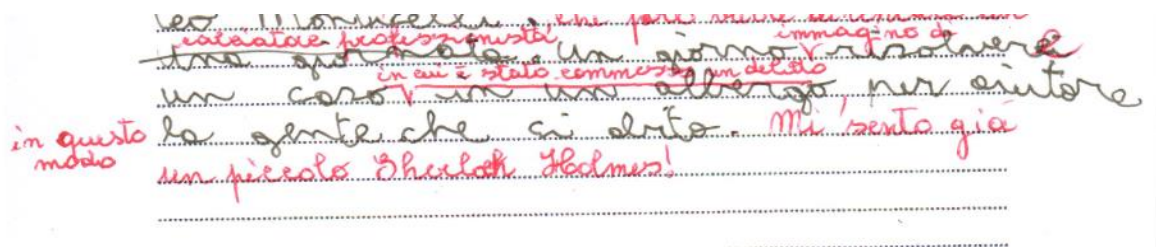 che fare
calciatore professionista immagino di
una giornata. Un giorno risolvere
in cui è stato commesso un delitto
un caso in un albergo per aiutare
in questo modo la gente che ci abita. Mi sento già
un piccolo Sherlock Holmes!